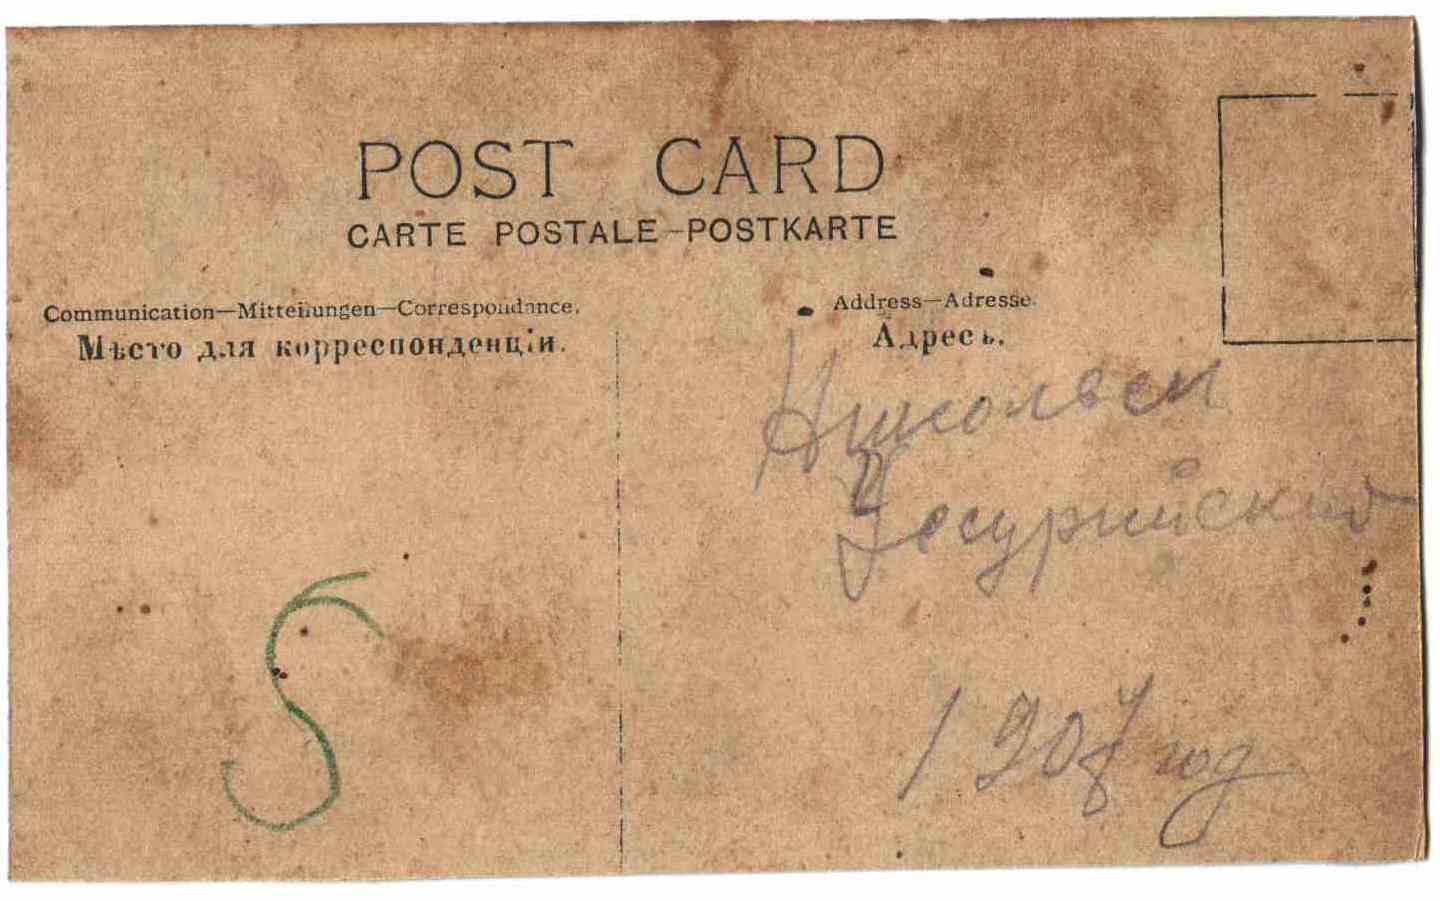 POST CARD
CARTE POSTALE-POSTKARTE
Communication—Mitteilungen—Correspondance.
Мѣсто для корреспонденціи.
Address—Adresse.
Адресь.
Никольск
Уссурийский
190 год
5